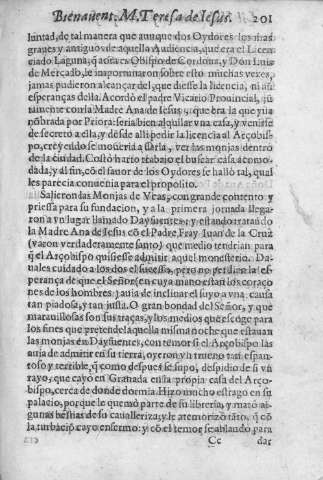 Bienauent. M. Teresa de Iesus. 201
luntad, de tal manera que aunque dos Oydores los mas
graues y antiguos de aquella Audiencia, que era el Licen
ciado Laguna, q̃ aora es Obispo de Cordoua, y Don Luis
de Mercado, le importunaron sobre esto muchas vezes,
jamas pudieron alcançar del, que diesse la licencia, ni aũ
esperanças della. Acordò el padre Vicario Prouincial, jũ
tamente con la Madre Ana de Iesus, que era la que yua
nõbrada por Priora: seria bien alquilar vna casa, y venirse
de secreto a ella, y desde alli pedir la licencia al Arçobis-
po, creyẽdo se moueria a darla, ver las monjas dentro
de la ciudad. Costò harto trabajo el buscar casa acomo-
dada, y al fin, cõ el fauor de los Oydores se hallò tal, qual
les parecia conuenia para el proposito.
Salieron das Monjas de Veas, con grande contento y
priessa para su fundacion, y a la primera jornada llega-
ron a vn lugar llamado Dayfuentes, y estando tratando
la Madre Ana de Iesus cõ el Padre Fray Iuan de la Cruz
(varon verdaderamente santo) que medio tendrian para
q̃ el Arçobispo quisiesse admitir aquel monesterio. Da-
uales cuidado a los dos el sucesso, pero no perdian la es-
perança de que el Señor (en cuya mano estan los coraço
nes de los hombres) auia de inclinar el suyo a vna causa
tan piadosa, y tan justa. O gran bondad del Señor, y que
marauillosas son sus traças, y los medios que escoge para
los fines que pretende! aquella misma noche que estauan
las monjas en Dayfuentes, con temor si el Arçobispo las
auia de admitir en su tierra, oyeron vn trueno tan espan-
toso y terrible, q̃ como despues se supo, despidio de si vn
rayo, que cayò en Granada en la propia casa del Arço-
bispo, cerca de donde dormia. Hizo mucho estrago en su
palacio, porque le quemò parte de su libreria, y matò al-
gunas bestias de su caualleriza; y le atemorizò tãto, q̃ cõ
la turbaciõ cayo enfermo: y cõ el temor se ablando para
Cc dar